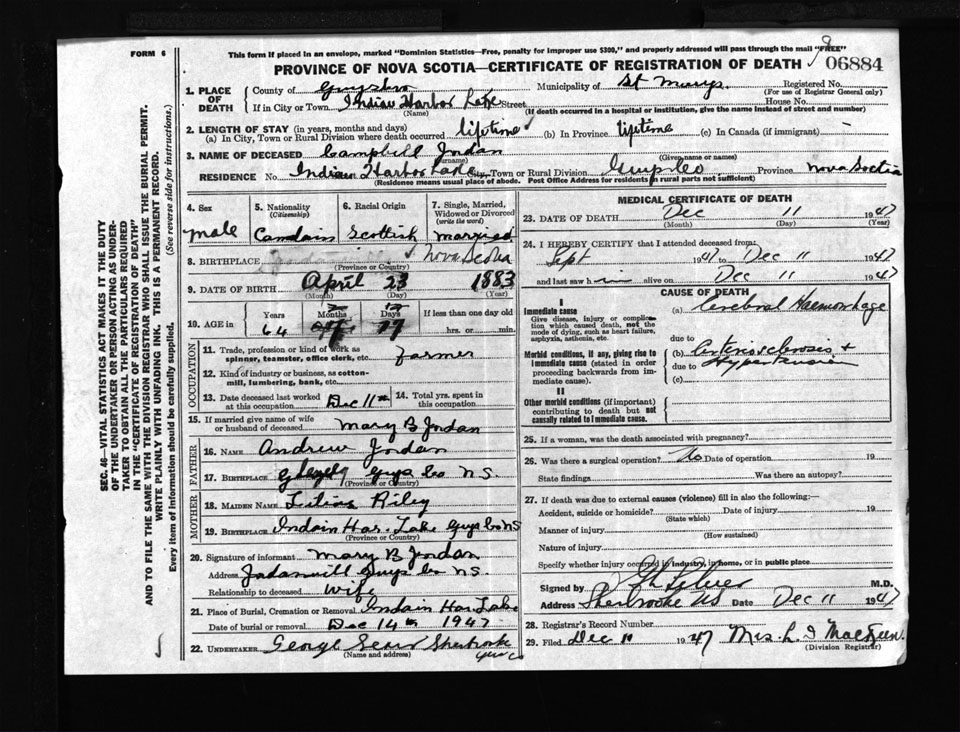 FORM 6
This form if placed in an envelope, marked "Dominion Statistics—Free, penalty for improper use $300," and properly addressed will pass through the mail "FREE"
PROVINCE OF NOVA SCOTIA—CERTIFICATE OF REGISTRATION OF DEATH
9
06884
SEC. 46—VITAL STATISTICS ACT MAKES IT THE DUTY
OF THE UNDERTAKER OR PERSON ACTING AS UNDER-
TAKER TO OBTAIN ALL THE PARTICULARS REQUIRED
IN THE "CERTIFICATE OF REGISTRATION OF DEATH"
AND TO FILE THE SAME WITH THE DIVISION REGISTRAR WHO SHALL ISSUE THE BURIAL PERMIT.
WRITE PLAINLY WITH UNFADING INK. THIS IS A PERMANENT RECORD.
Every item of information should be carefully supplied. (See reverse side for instructions.)
1. PLACE OF DEATH
County of Guysboro Municipality of St Marys Registered No.
(For use of Registrar General only)
If in City or Town Indian Harbor Lake Street House No.
(Name) (If death occurred in a hospital or institution, give the name instead of street and number)
2. LENGTH OF STAY (in years, months and days)
(a) In City, Town or Rural Division where death occurred lifetime (b) In Province lifetime (c) In Canada (if immigrant)
3. NAME OF DECEASED Campbell Jordan
(Surname) (Given name or names)
RESIDENCE No. Indian Harbor Lake City, Town or Rural Division Guys Co Province Nova Soctia
(Residence means usual place of abode. Post Office Address for residents in rural parts not sufficient)
4. Sex
male
5. Nationality
(Citizenship)
Candain
6. Racial Origin
Scottish
7. Single, Married,
Widowed or Divorced
(write the word)
married
8. BIRTHPLACE Nova Scotia
(Province or Country)
9. DATE OF BIRTH April 23 1883
(Month) (Day) (Year)
10. AGE in
Years Months Days If less than one day old
64 hrs. or min.
OCCUPATION
11. Trade, profession or kind of work as
spinner, teamster, office clerk, etc. farmer
12. Kind of industry or business, as cotton-
mill, lumbering, bank, etc.
13. Date deceased last worked
at this occupation Dec 11th
14. Total yrs. spent in
this occupation
15. If married give name of wife
or husband of deceased Mary B Jordan
FATHER
16. NAME Andrew Jordan
17. BIRTHPLACE Guys Co N.S.
(Province or Country)
MOTHER
18. MAIDEN NAME Lilias Riley
19. BIRTHPLACE Indain Har. Lake Guys Co NS
(Province or Country)
20. Signature of informant Mary B Jordan
Address Jadanvill Guys Co NS.
Relationship to deceased wife
21. Place of Burial, Cremation or Removal Indain Har. Lake
Date of burial or removal Dec 14th 1947
22. UNDERTAKER George Sherbrook
(Name and address)
MEDICAL CERTIFICATE OF DEATH
23. DATE OF DEATH Dec 11 1947
(Month) (Day) (Year)
24. I HEREBY CERTIFY that I attended deceased from:
Sept 1947 to Dec 11 1947
and last saw h im alive on Dec 11 1947
CAUSE OF DEATH
I
Immediate cause
Give disease, injury or complica-
tion which caused death, not the
mode of dying, such as heart failure,
asphyxia, asthenia, etc.
(a) Cerebral Haemorrhage
due to
Morbid conditions, if any, giving rise to
immediate cause (stated in order
proceeding backwards from im-
mediate cause).
(b) Arteriosclerosis +
due to Hypertension
(c)
II
Other morbid conditions (if important)
contributing to death but not
causally related to immediate cause.
25. If a woman, was the death associated with pregnancy?
26. Was there a surgical operation? No Date of operation 19
State findings Was there an autopsy?
27. If death was due to external causes (violence) fill in also the following:—
Accident, suicide or homicide? Date of injury 19
(State which)
Manner of injury
(How sustained)
Nature of injury
Specify whether injury occurred in industry, in home, or in public place
Signed by M.D.
Address Sherbrooke NS Date Dec 11 1947
28. Registrar's Record Number
29. Filed Dec 11 1947 Mrs. L. I MacKeen.
(Division Registrar)